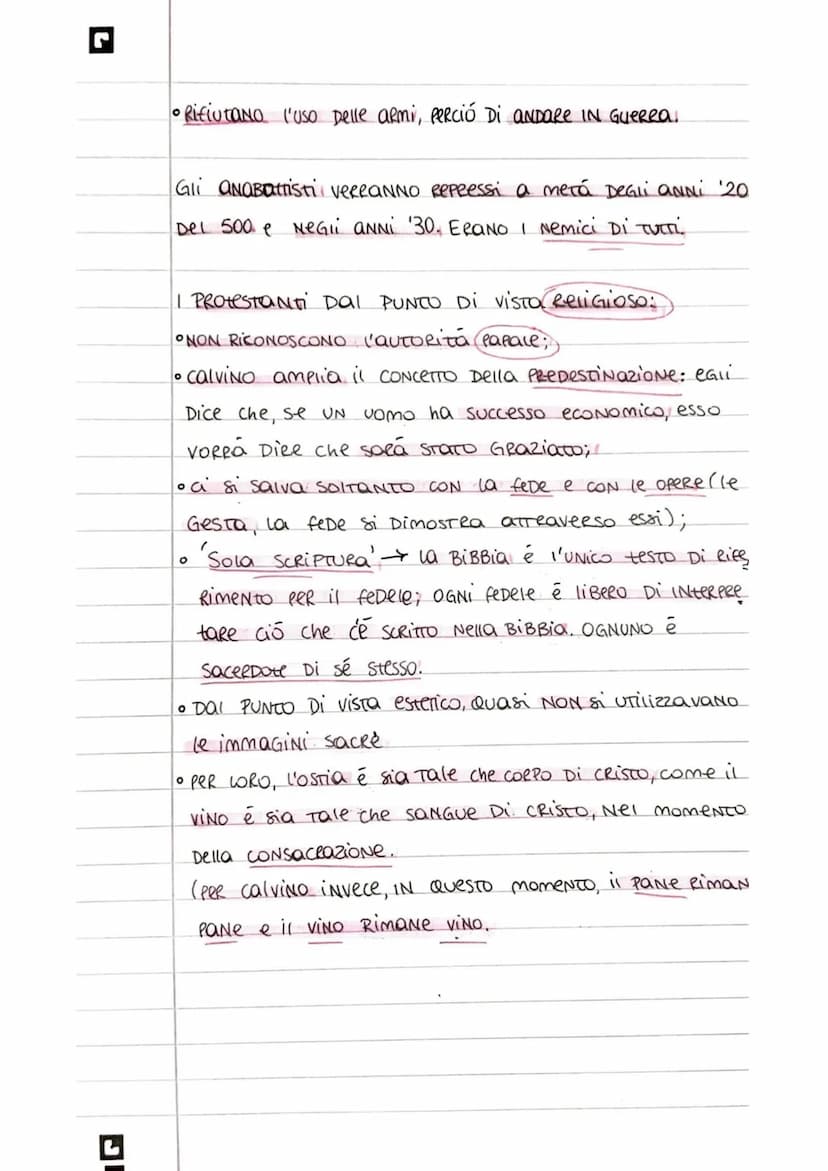 • RIFIUTANO l'uso delle armi, perció di ANDARE IN GUERRA.
Gli ANABattisti verranno repressi a metá degli anni '20
del 500 e negli anni '30. Erano i nemici di tutti.
I PROTESTANTI dal punto di vista religioso:
• NON RICONOSCONO l'autoritá papale;
• Calvino amplia il concetto della PREDESTINAZIONE: egli
dice che, se un uomo ha successo economico, esso
vorrá dire che sará stato graziato;
• ci si salva soltanto con la fede e con le opere (le
gesta, la fede si dimostra attraverso essi);
• 'Sola scriptura' → la Bibbia é l'unico testo di rife
rimento per il fedele; ogni fedele é libero di interpre
tare ció che c'é scritto nella Bibbia. Ognuno é
sacerdote di sé stesso.
• Dal punto di vista esterico, quasi non si utilizzavano
le immagini sacre
• Per loro, l'ostia é sia tale che corpo di Cristo, come il
vino é sia tale che sangue di Cristo, nel momento
della consacrazione.
(Per Calvino invece, in questo momento, il pane riman
pane e il vino rimane vino.